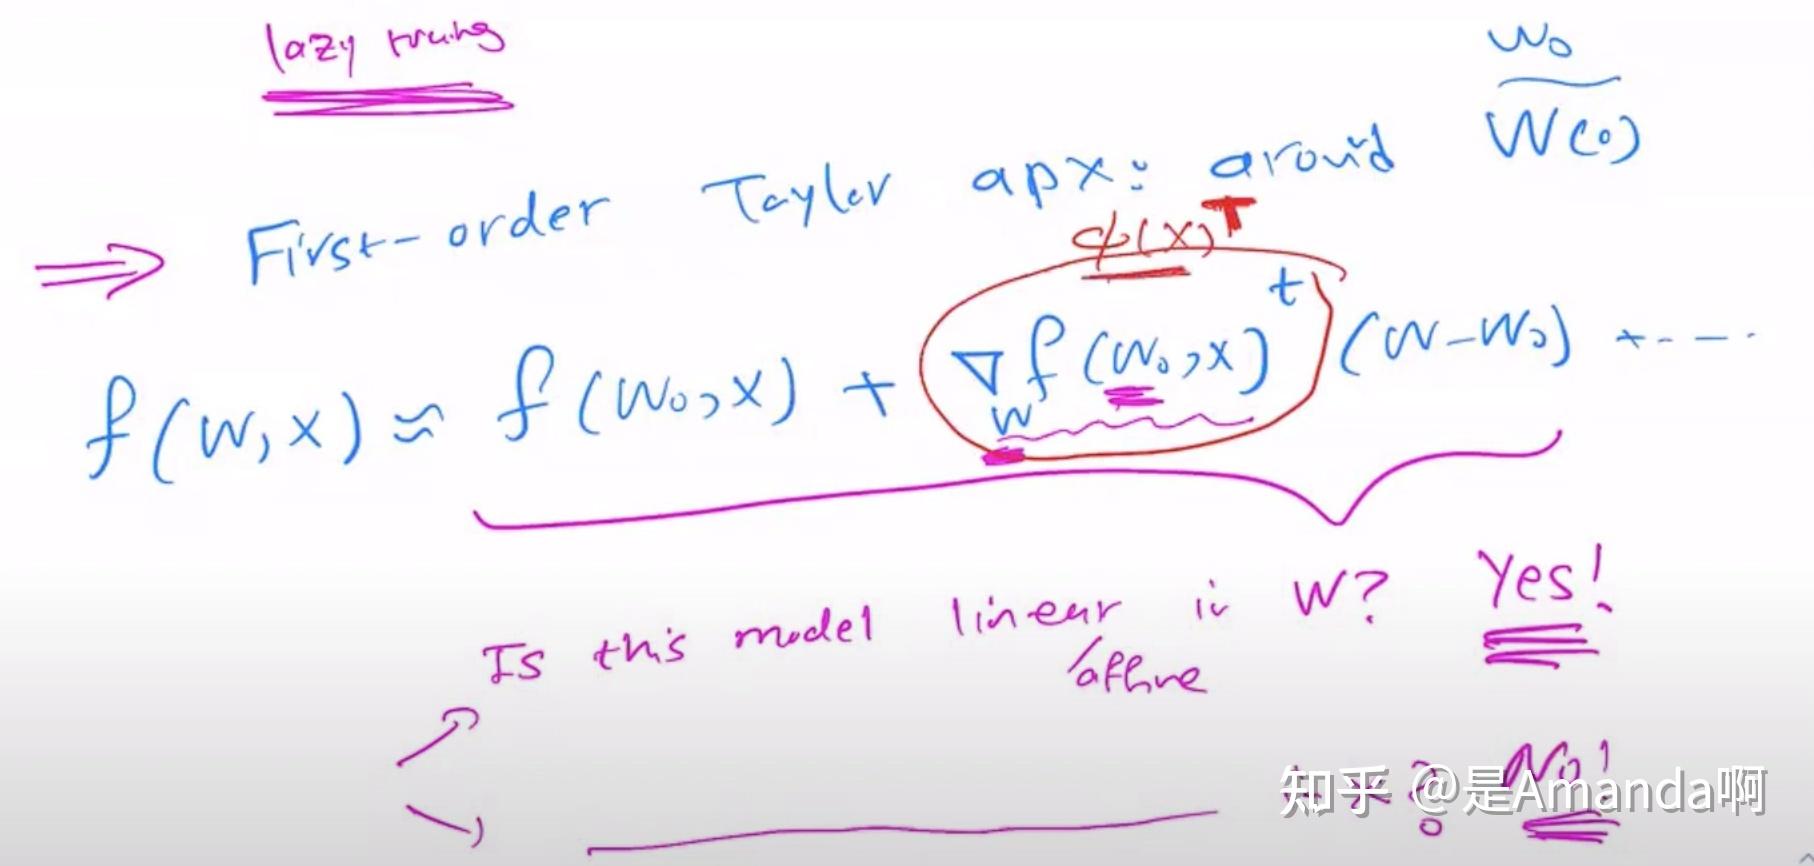 lazy training
w₀
First-order Taylor apx: around W(0)
ϕ(x)ᵀ
f(w,x) ≈ f(w₀,x) + ∇_w f(w₀,x)ᵗ (w-w₀) + ----
Is this model linear in W? Yes!
/affine
x? No!
知乎 @是Amanda啊